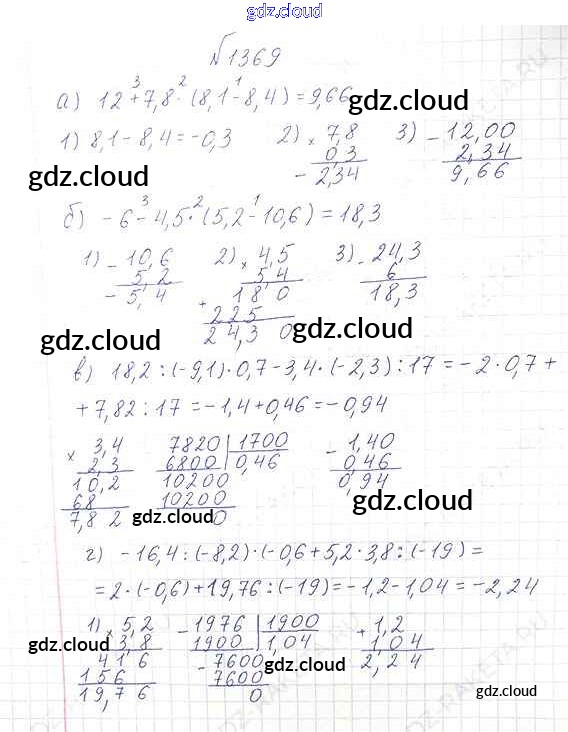 gdz.cloud
№1369
3 2 1
а) 12+7,8·(8,1-8,4)=9,66
gdz.cloud
1) 8,1-8,4=-0,3 2) × 7,8 3) - 12,00
0,3 2,34
- 2,34 9,66
gdz.cloud
3 2 1
б) -6-4,5·(5,2-10,6)=18,3
1) - 10,6 2) × 4,5 3) - 24,3
5,2 5 4 6
- 5,4 + 1 8 0 18,3
2 2 5
2 4,3 0
gdz.cloud gdz.cloud
в) 18,2:(-9,1)·0,7-3,4·(-2,3):17=-2·0,7+
+7,82:17=-1,4+0,46=-0,94
× 3,4 7820 | 1700 - 1,40
2,3 6800 | 0,46 0,46
10,2 10200 0,94
68 10200
7,8 2 0
gdz.cloud gdz.cloud
г) -16,4:(-8,2)·(-0,6+5,2·3,8:(-19)=
=2·(-0,6)+19,76:(-19)=-1,2-1,04=-2,24
1) × 5,2 - 1976 | 1900 + 1,2
3,8 1900 | 1,04 1,04
4 1 6 - 7600 2,24
1 5 6 7600
19,7 6 0
gdz.cloud gdz.cloud
gdz.cloud